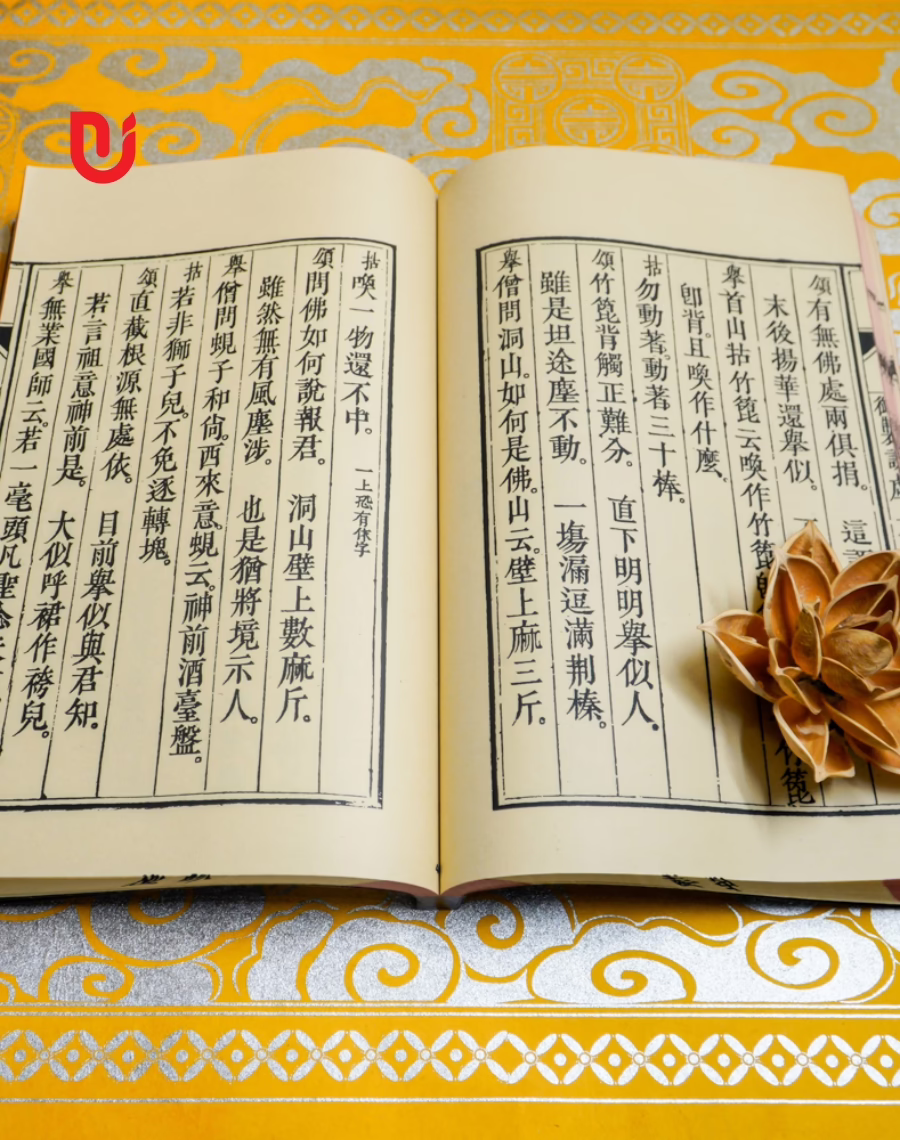 頌有無佛處兩俱捐。 這
末後揚華還舉似。
舉首山拈竹篦云喚作竹篦 竹篦
卽背。且喚作什麼。
拈勿動著。動著三十棒。
頌竹篦背觸正難分。 直下明明舉似人。
雖是坦途塵不動。 一塲漏逗滿荆榛。
舉僧問洞山。如何是佛。山云。壁上麻三斤。
拈喚一物還不中。 一上恐有休字
頌問佛如何說報君。 洞山壁上數麻斤。
雖然無有風塵涉。 也是猶將境示人。
舉僧問蜆子和尙。西來意。蜆云。神前酒臺盤。
拈若非獅子兒。不免逐轉塊。
頌直截根源無處依。 目前舉似與君知。
若言祖意神前是。 大似呼裙作袴兒。
舉無業國師云。若一毫頭凡聖